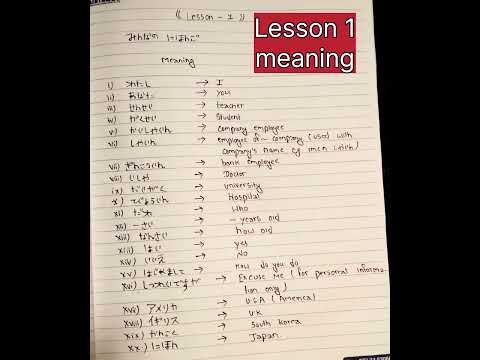 《 Lesson - 1 》
Lesson 1
meaning
みんなの にほんご
Meaning
i) わたし → I
ii) あなた → you
iii) せんせい → teacher
iv) がくせい → Student
v) かいしゃいん → Company employee
vi) しゃいん → employee of — Company (used with
Company's name eg
vii) ぎんこういん → bank employee
viii) いしゃ → Doctor
ix) だいがく → University
x) びょういん → Hospital
xi) だれ → Who
xii) -さい → - years old
xiii) なんさい → how old
xiii) はい → yes
xiv) いいえ → No
xv) はじめまして → How do you do
xvi) しつれいですが → Excuse Me (for personal informa-
tion only)
xvii) アメリカ → USA (America)
xviii) イギリス → U.K
xix) かんこく → South korea
xx) にほん → Japan.